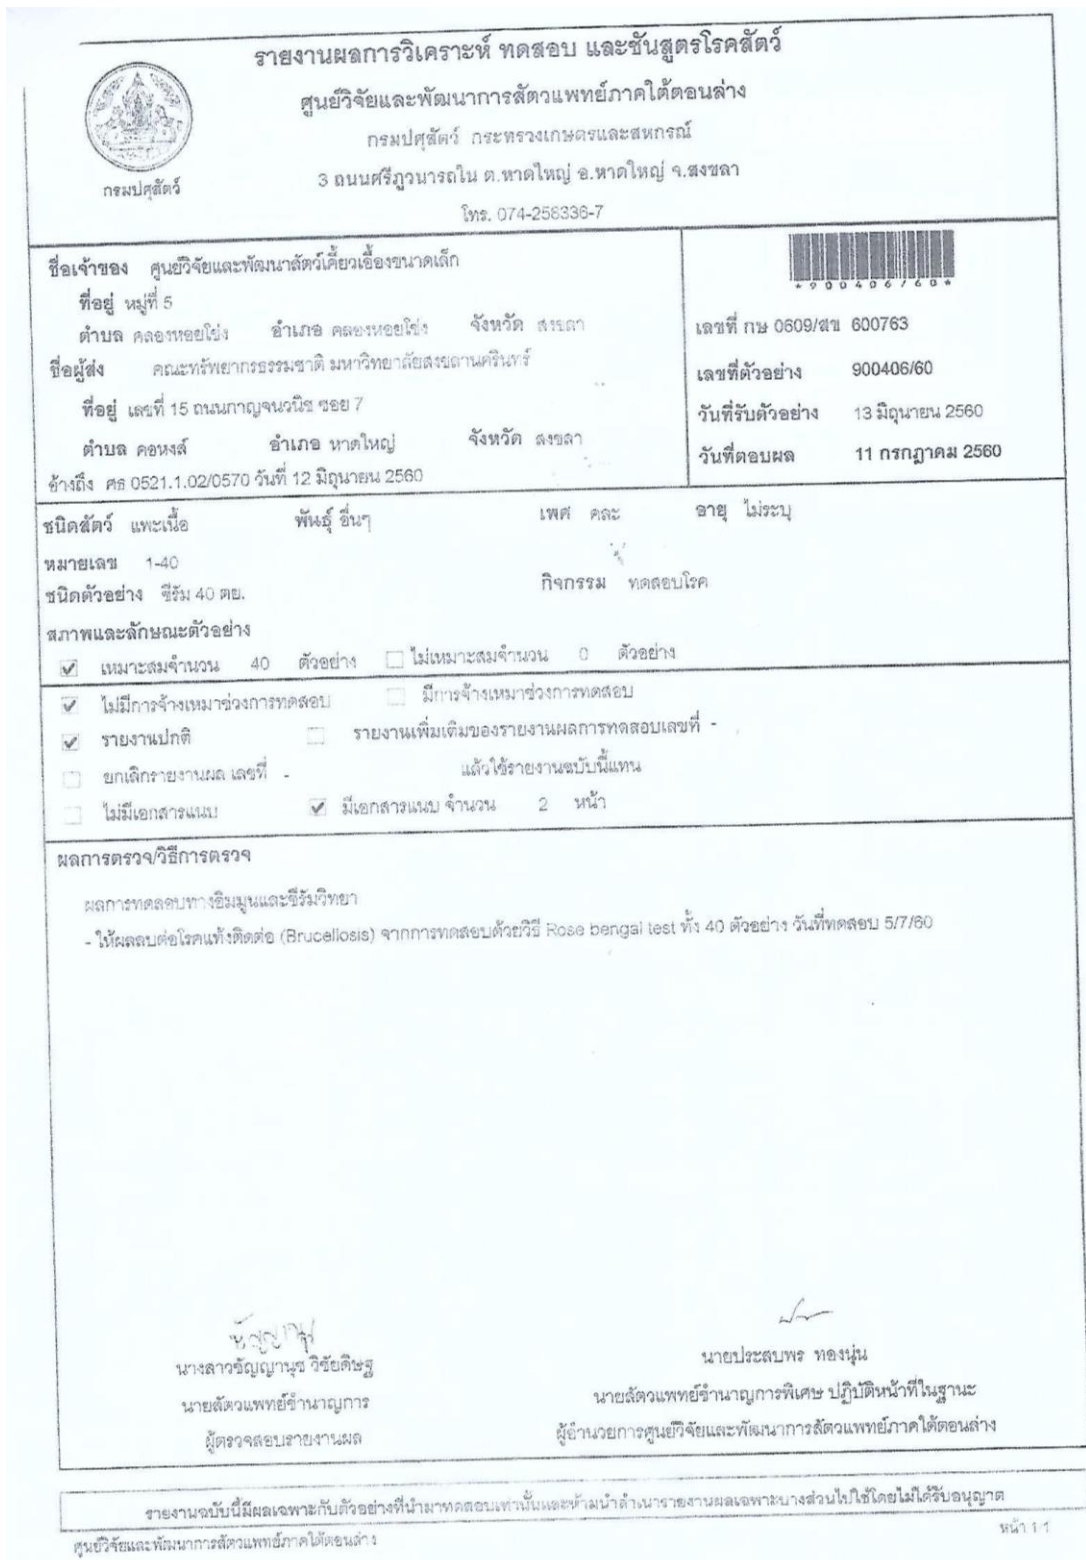 รายงานผลการวิเคราะห์ ทดสอบ และชันสูตรโรคสัตว์
ศูนย์วิจัยและพัฒนาการสัตวแพทย์ภาคใต้ตอนล่าง
กรมปศุสัตว์ กระทรวงเกษตรและสหกรณ์
3 ถนนศรีภูวนารถใน ต.หาดใหญ่ อ.หาดใหญ่ จ.สงขลา
กรมปศุสัตว์
โทร. 074-258336-7
ชื่อเจ้าของ ศูนย์วิจัยและพัฒนาสัตว์เคี้ยวเอื้องขนาดเล็ก
ที่อยู่ หมู่ที่ 5
ตำบล คลองหอยโข่ง อำเภอ คลองหอยโข่ง จังหวัด สงขลา
ชื่อผู้ส่ง คณะทรัพยากรธรรมชาติ มหาวิทยาลัยสงขลานครินทร์
ที่อยู่ เลขที่ 15 ถนนกาญจนวนิช ซอย 7
ตำบล คอหงส์ อำเภอ หาดใหญ่ จังหวัด สงขลา
อ้างถึง ศธ 0521.1.02/0570 วันที่ 12 มิถุนายน 2560
*900406/60*
เลขที่ กษ 0609/สข 600763
เลขที่ตัวอย่าง 900406/60
วันที่รับตัวอย่าง 13 มิถุนายน 2560
วันที่ตอบผล 11 กรกฎาคม 2560
ชนิดสัตว์ แพะเนื้อ พันธุ์ อื่นๆ เพศ คละ อายุ ไม่ระบุ
หมายเลข 1-40
ชนิดตัวอย่าง ซีรัม 40 ตย. กิจกรรม ทดสอบโรค
สภาพและลักษณะตัวอย่าง
เหมาะสมจำนวน 40 ตัวอย่าง ไม่เหมาะสมจำนวน 0 ตัวอย่าง
ไม่มีการจ้างเหมาช่วงการทดสอบ มีการจ้างเหมาช่วงการทดสอบ
รายงานปกติ รายงานเพิ่มเติมของรายงานผลการทดสอบเลขที่ -
ยกเลิกรายงานผล เลขที่ - แล้วใช้รายงานฉบับนี้แทน
ไม่มีเอกสารแนบ มีเอกสารแนบ จำนวน 2 หน้า
ผลการตรวจ/วิธีการตรวจ
ผลการทดสอบทางอิมมูนและซีรัมวิทยา
- ให้ผลลบต่อโรคแท้งติดต่อ (Brucellosis) จากการทดสอบด้วยวิธี Rose bengal test ทั้ง 40 ตัวอย่าง วันที่ทดสอบ 5/7/60
นางสาวชัญญานุช วิชัยดิษฐ
นายสัตวแพทย์ชำนาญการ
ผู้ตรวจสอบรายงานผล
นายประสบพร ทองนุ่น
นายสัตวแพทย์ชำนาญการพิเศษ ปฏิบัติหน้าที่ในฐานะ
ผู้อำนวยการศูนย์วิจัยและพัฒนาการสัตวแพทย์ภาคใต้ตอนล่าง
รายงานฉบับนี้มีผลเฉพาะกับตัวอย่างที่นำมาทดสอบเท่านั้นและห้ามนำสำเนารายงานผลเฉพาะบางส่วนไปใช้โดยไม่ได้รับอนุญาต
ศูนย์วิจัยและพัฒนาการสัตวแพทย์ภาคใต้ตอนล่าง
หน้า 1/1